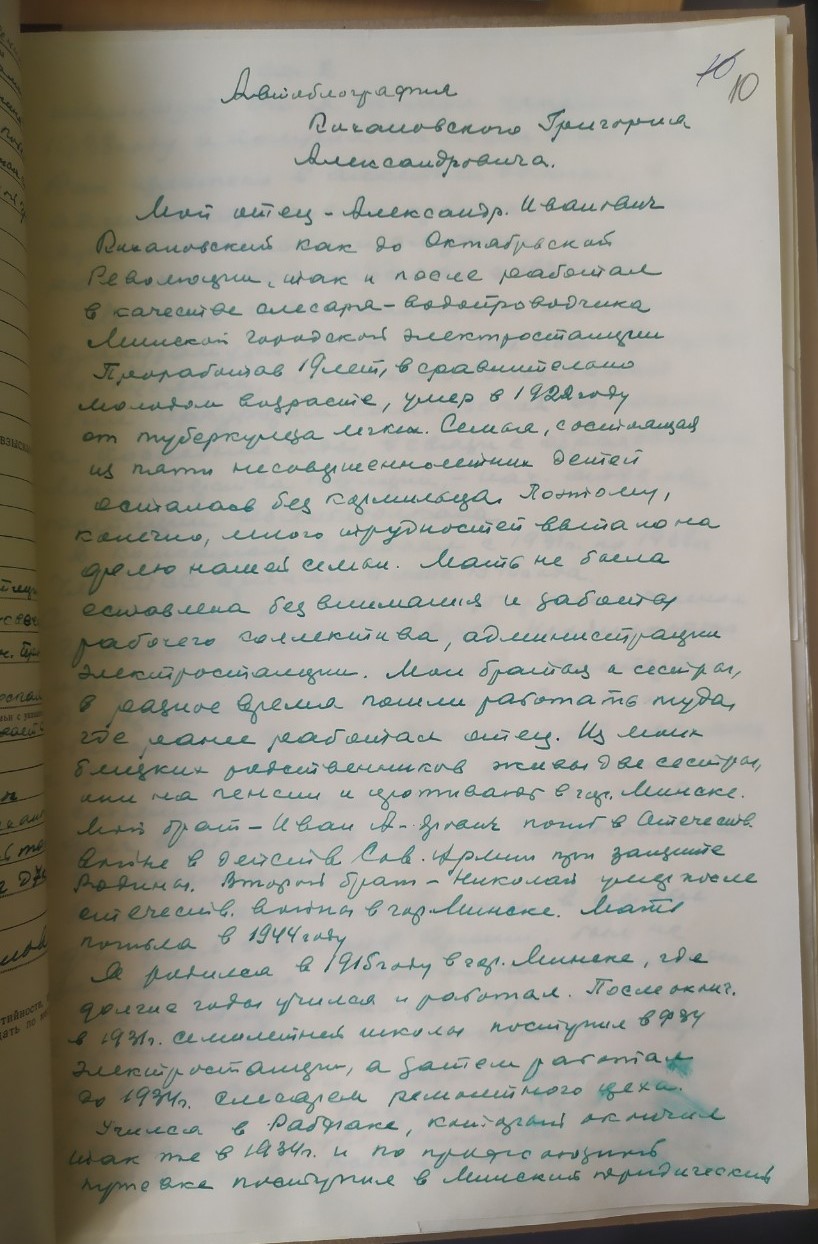 10
Автобиография
Григория
Александровича.
Мой отец - Александр Иванович
как до Октябрьской
Революции, так и после работал
в качестве слесаря-водопроводчика
Минской городской электростанции
Проработав 19 лет, в сравнительно
молодом возрасте, умер в 1922 году
от туберкулеза легких. Семья, состоящая
из пяти несовершеннолетних детей
осталась без кормильца. Поэтому,
конечно, много трудностей выпало на
долю нашей семьи. Мать не была
оставлена без внимания и заботы
рабочего коллектива, администрации
электростанции. Мои братья и сестры,
в разное время пошли работать туда,
где ранее работал отец. Из моих
близких родственников живы две сестры,
они на пенсии и проживают в гор. Минске.
Мой брат - Иван погиб в Отечеств.
войне в Сов. Армии при защите
Родины. Второй брат - Николай умер после
отечеств. войны в гор. Минске. Мать
погибла в 1944 году
Я родился в 1915 году в гор. Минске, где
долгие годы учился и работал. После оконч.
в 1931г. семилетней школы поступил в ФЗУ
электростанции, а затем работал
до 1934г. слесарем ремонтного цеха.
Учился в Рабфаке, который окончил
так же в 1934г. и по
путевке поступил в Минский юридический